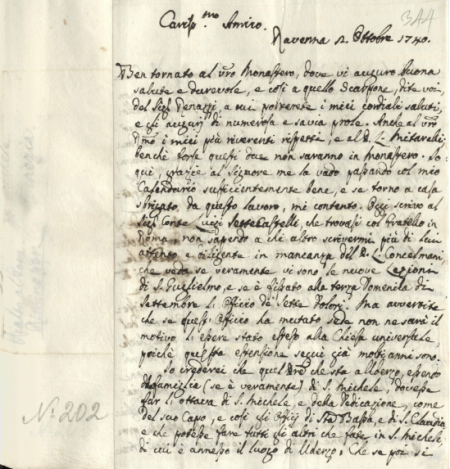 344
Cariss.mo Amico.
Ravenna 12 Ottobre 1740.
Ben tornato al vro Monastero, dove vi auguro buona
salute e durevole, e così a quello Scarpone, dite voi,
del Sig.
e gli auguri di numerosa e savia prole. Anche al vro
i miei più riverenti rispetti, e al P. Mittarelli
benchè forse questi due non saranno in monastero. Io
qui, grazie al Signore me la vado passando col mio
Calendario sufficientemente bene, e se torno a casa
sbrigato da questo lavoro, mi contento. Oggi scrivo al
Sig. Conte Settecastelli, che trovasi col fratello in
Roma, non sapendo a chi altro scrivermi più di lui
attento e diligente in mancanza del P.
che veda se veramente vi sono le nuove Lezioni
di S. Guglielmo, e se è fissato alla terza Domenica di
Settembre l'Officio de' Sette Dolori. Ma avvertite
che se quest'Officio ha mutato sede non ne sarà il
motivo l'essere stato esteso alla Chiesa universale
poichè questa estensione seguì già molti anni sono.
Io crederei che quel che sta a
(se è veramente) di S. Michele, dovesse
far l'ottava di S. Michele, e della Dedicazione, come
del suo Capo, e così gli Offizj di Sta Bassa, e di S. Claudia
e che potesse fare tutti gli altri che fate in S. Michele,
di cui è annesso il luogo di Che se poi si
N.º 202